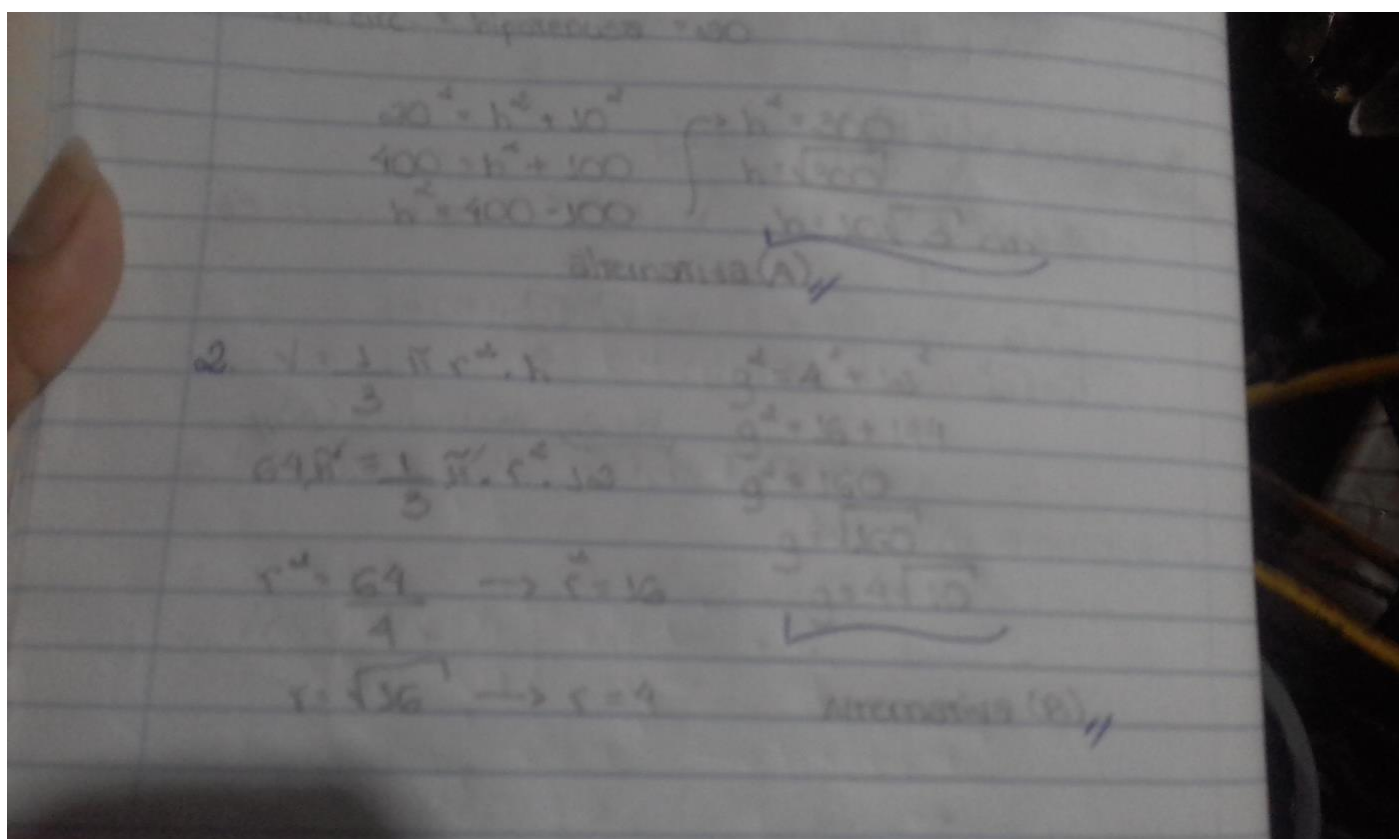 hipotenusa = 20
20² = h² + 10²
400 = h² + 100
h² = 400 - 100
→ h² = 300
h = √300
h = 10√3 cm
alternativa (A)
2. V = 1/3 π r² . h
64π = 1/3 π . r² . 12
r² = 64/4 → r² = 16
r = √16 → r = 4
g² = 4² + 12²
g² = 16 + 144
g² = 160
g = √160
g = 4√10
alternativa (B)